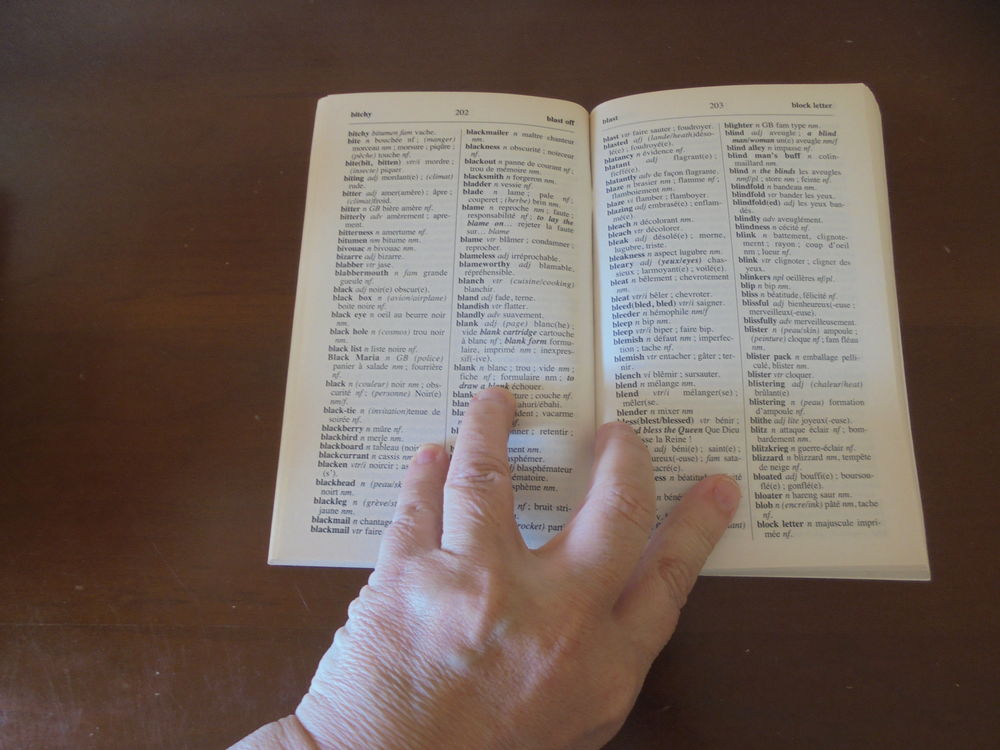 bitchy 202 blast off
bitchy bitumen fam vache.
bite n bouchée nf ; (manger)
morceau nm ; morsure ; piqûre ;
(pêche) touche nf.
bite(bit, bitten) vtr/i mordre ;
(insecte) piquer
biting adj mordant(e) ; (climat)
rude.
bitter adj amer(amère) ; âpre ;
(climat)froid.
bitter n GB bière amère nf.
bitterly adv amèrement ; apre-
ment.
bitterness n amertume nf.
bitumen nm bitume nm.
bivouac n bivouac nm.
bizarre adj bizarre.
blabber vtr jase.
blabbermouth n fam grande
gueule nf.
black adj noir(e) obscur(e).
black box n (avion/airplane)
boite noire nf.
black eye n oeil au beurre noir
nm.
black hole n (cosmos) trou noir
nm.
black list n liste noire nf.
Black Maria n GB (police)
panier à salade nm ; fourrière
nf.
black n (couleur) noir nm ; obs-
curité nf ; (personne) Noir(e)
nm/f.
black-tie n (invitation)tenue de
soirée nf.
blackberry n mûre nf.
blackbird n merle nm.
blackboard n tableau (noir
blackcurrant n cassis nm
blacken vtr/i noircir ; as
(s').
blackhead n (peau/sk
noirt nm.
blackleg n (grève/st
jaune nm.
blackmail n chantage
blackmail vtr faire
blackmailer n maître chanteur
nm.
blackness n obscurité ; noirceur
nf.
blackout n panne de courant nf ;
trou de mémoire nm.
blacksmith n forgeron nm.
bladder n vessie nf.
blade n lame ; pale nf ;
couperet ; (herbe) brin nm.
blame n reproche nm ; faute ;
responsabilité nf ; to lay the
blame on... rejeter la faute
sur... blame
blame vtr blâmer ; condamner ;
reprocher.
blameless adj irréprochable.
blameworthy adj blamable,
répréhensible.
blanch vtr (cuisine/cooking)
blanchir.
bland adj fade, terne.
blandish vtr flatter.
blandly adv suavement.
blank adj (page) blanc(he) ;
vide blank cartridge cartouche
à blanc nf ; blank form formu-
laire, imprimé nm ; inexpres-
sif(-ive).
blank n blanc ; trou ; vide nm ;
fiche nf ; formulaire nm ; to
draw a blank échouer.
blank ture ; couche nf.
blan ahuri/ébahi.
blar dent ; vacarme
nf.
onner ; retentir ;
ment nm.
asphémer.
dj blasphémateur
ématoire.
sphème nm.
nf ; bruit stri-
rocket) parti
blast 203 block letter
blast vtr faire sauter ; foudroyer.
blasted adj (lande/heath)déso-
lé(e) ; foudroyé(e).
blatancy n évidence nf.
blatant adj flagrant(e) ;
fieffé(e).
blatantly adv de façon flagrante.
blaze n brasier nm ; flamme nf ;
flamboiement nm.
blaze vi flamber ; flamboyer.
blazing adj embrasé(e) ; enflam-
mé(e).
bleach n décolorant nm.
bleach vtr décolorer.
bleak adj désolé(e) ; morne,
lugubre, triste.
bleakness n aspect lugubre nm.
bleary adj (yeux/eyes) chas-
sieux ; larmoyant(e) ; voilé(e).
bleat n bêlement ; chevrotement
nm.
bleat vtr/i bêler ; chevroter.
bleed(bled, bled) vtr/i saigner.
bleeder n hémophile nm/f
bleep n bip nm.
bleep vtr/i biper ; faire bip.
blemish n défaut nm ; imperfec-
tion ; tache nf.
blemish vtr entacher ; gâter ; ter-
nir.
blench vi blêmir ; sursauter.
blend n mélange nm.
blend vtr/i mélanger(se) ;
mêler(se.
blender n mixer nm
bless(blest/blessed) vtr bénir ;
d bless the Queen Que Dieu
sse la Reine !
adj béni(e) ; saint(e) ;
ureux(-euse) ; fam sata-
sacré(e).
ess n béatitud
n béné
blighter n GB fam type nm.
blind adj aveugle ; a blind
man/woman un(e) aveugle nm/f
blind alley n impasse nf.
blind man's buff n colin-
maillard nm.
blind n the blinds les aveugles
nmf/pl ; store nm ; feinte nf.
blindfold n bandeau nm.
blindfold vtr bander les yeux.
blindfold(ed) adj les yeux ban-
dés.
blindly adv aveuglément.
blindness n cécité nf.
blink n battement, clignote-
ment ; rayon ; coup d'oeil
nm ; lueur nf.
blink vtr clignoter ; cligner des
yeux.
blinkers npl oeillères nf/pl.
blip n bip nm.
bliss n béatitude, félicité nf.
blissful adj bienheureux(-euse ;
merveilleux(-euse).
blissfully adv merveilleusement.
blister n (peau/skin) ampoule ;
(peinture) cloque nf ; fam fléau
nm.
blister pack n emballage pelli-
culé, blister nm.
blister vtr cloquer.
blistering adj (chaleur/heat)
brûlant(e)
blistering n (peau) formation
d'ampoule nf.
blithe adj lite joyeux(-euse).
blitz n attaque éclair nf ; bom-
bardement nm.
blitzkrieg n guerre-éclair nf.
blizzard n blizzard nm, tempête
de neige nf.
bloated adj bouffi(e) ; boursou-
flé(e) ; gonflé(e).
bloater n hareng saur nm.
blob n (encre/ink) pâté nm, tache
nf.
block letter n majuscule impri-
mée nf.